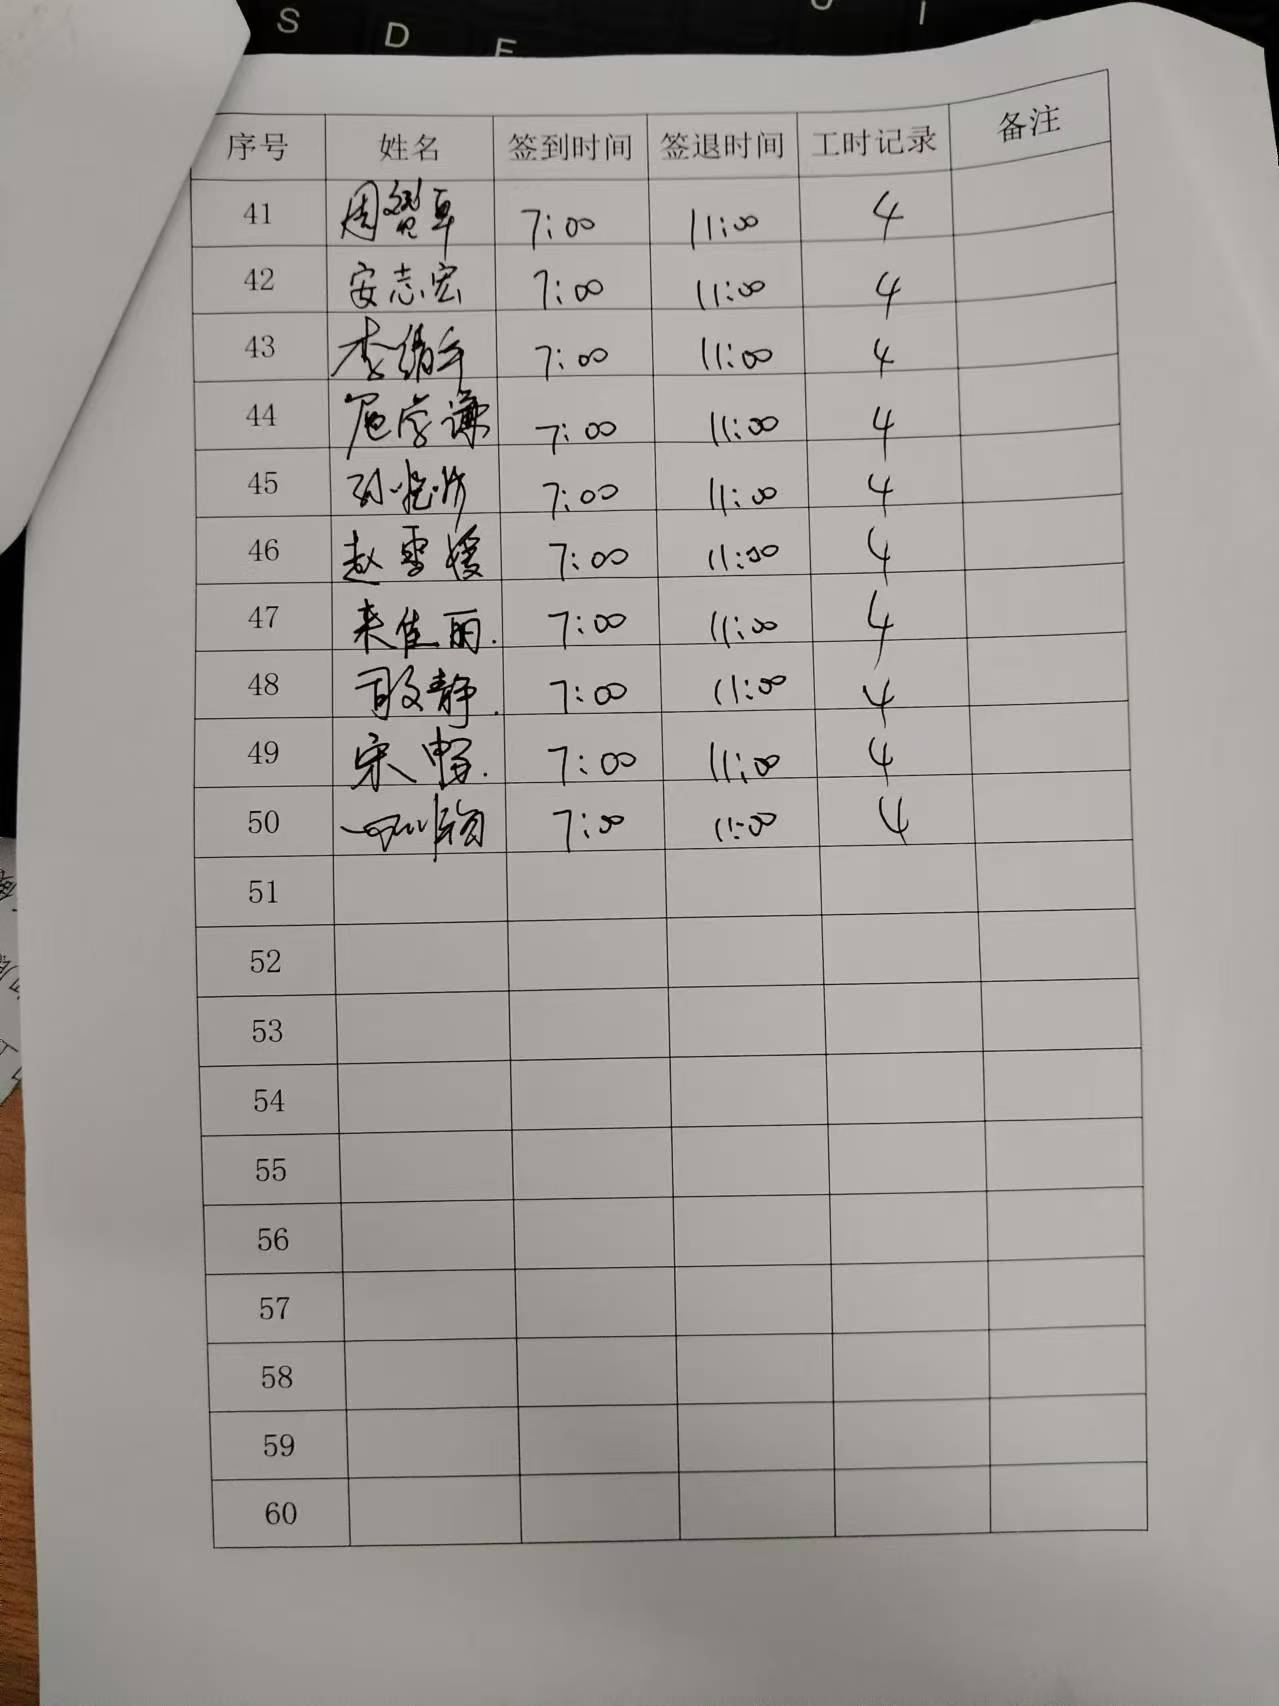 S D F J I
序号 姓名 签到时间 签退时间 工时记录 备注
41 周 7:00 11:00 4
42 安志宏 7:00 11:00 4
43 李 7:00 11:00 4
44 谦 7:00 11:00 4
45 孙 7:00 11:00 4
46 赵雪媛 7:00 11:00 4
47 来佳丽. 7:00 11:00 4
48 静. 7:00 11:00 4
49 宋畅. 7:00 11:00 4
50 7:00 11:00 4
51
52
53
54
55
56
57
58
59
60